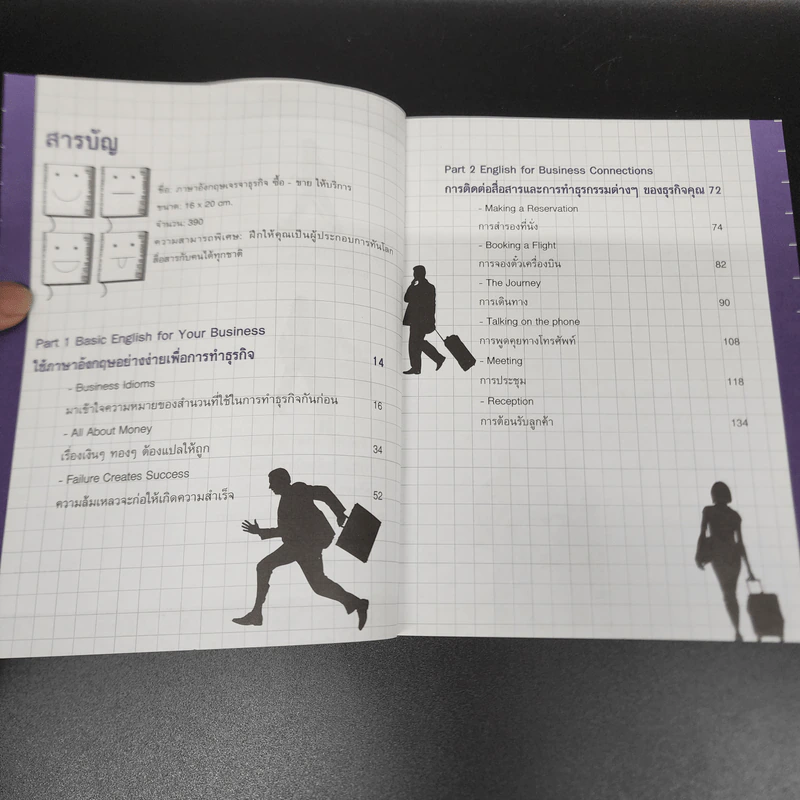 สารบัญ
ชื่อ: ภาษาอังกฤษเจรจาธุรกิจ ซื้อ - ขาย ให้บริการ
ขนาด: 16 x 20 cm.
จำนวน: 390
ความสามารถพิเศษ: ฝึกให้คุณเป็นผู้ประกอบการทันโลก
สื่อสารกับคนได้ทุกชาติ
Part 1 Basic English for Your Business
ใช้ภาษาอังกฤษอย่างง่ายเพื่อการทำธุรกิจ 14
- Business Idioms
มาเข้าใจความหมายของสำนวนที่ใช้ในการทำธุรกิจกันก่อน 16
- All About Money
เรื่องเงินๆ ทองๆ ต้องแปลให้ถูก 34
- Failure Creates Success
ความล้มเหลวจะก่อให้เกิดความสำเร็จ 52
Part 2 English for Business Connections
การติดต่อสื่อสารและการทำธุรกรรมต่างๆ ของธุรกิจคุณ 72
- Making a Reservation
การสำรองที่นั่ง 74
- Booking a Flight
การจองตั๋วเครื่องบิน 82
- The Journey
การเดินทาง 90
- Talking on the phone
การพูดคุยทางโทรศัพท์ 108
- Meeting
การประชุม 118
- Reception
การต้อนรับลูกค้า 134